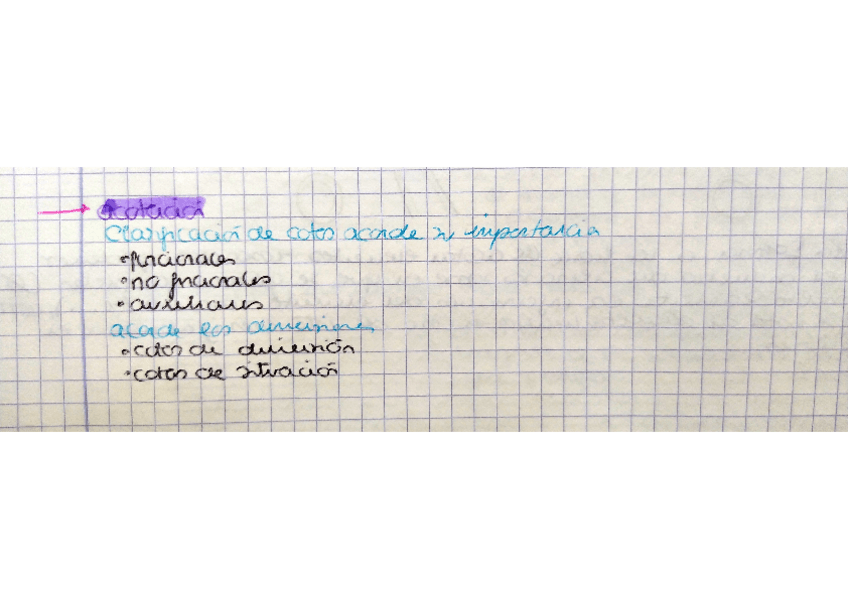 acotación
Clasificación de cotas acorde su importancia
• funcionales
• no funcionales
• auxiliares
acorde las dimensiones
• cotas de dimensión
• cotas de situación